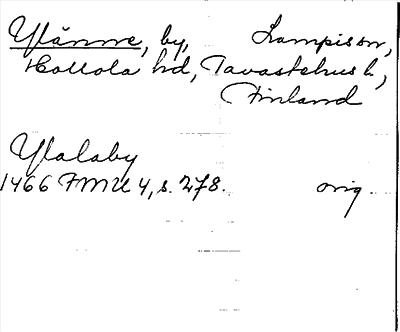 Ylänne, by, Lampis sn,
Hollola hd, Tavastehus l.,
Finland
Ylalaby
1466 FMU 4, s. 278. orig.